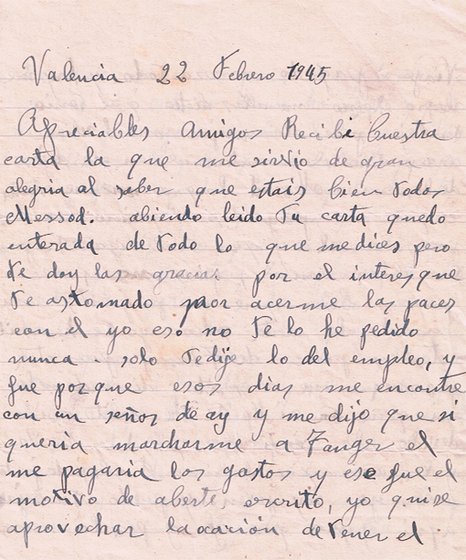 Valencia 22 Febrero 1945
Apreciables Amigos Recibi buestra
carta la que me sirvio de gran
alegria al saber que estais bien todos
Messod. abiendo leido tu carta quedo
enterada de todo lo que me dices pero
te doy las gracias por el interes que
te as tomado por acerme las paces
con el yo eso no te lo he pedido
nunca. solo te dije lo del empleo, y
fue porque esos dias me encontre
con un señor de ay y me dijo que si
queria marcharme a Tanger el
me pagaria los gastos y ese fue el
motivo de aberte escrito, yo quise
aprovechar la ocacion de tener el